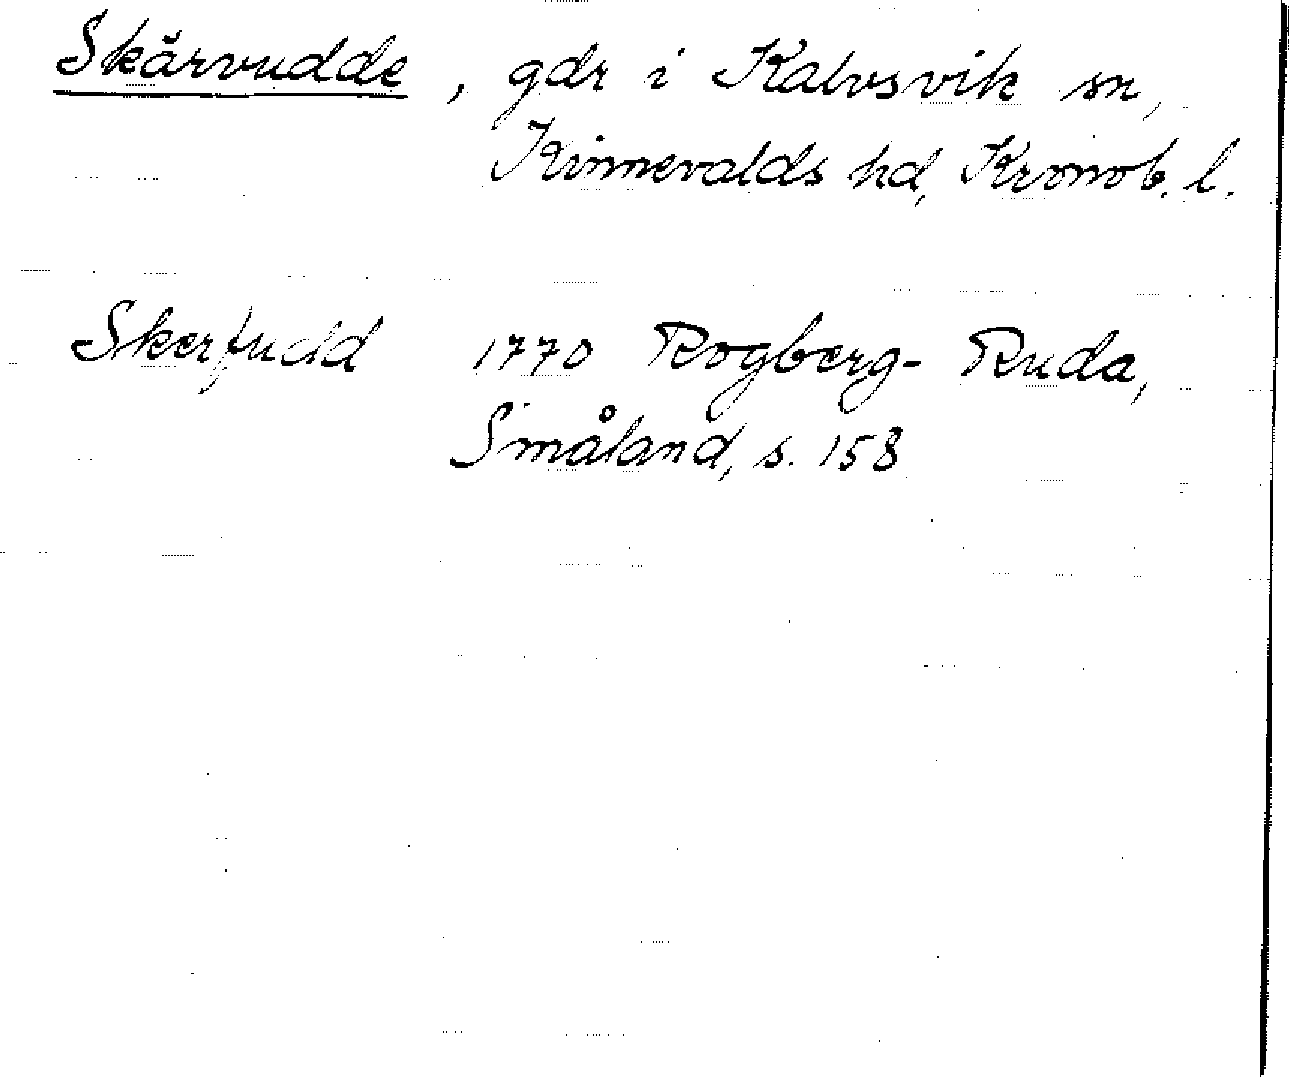 Skärvudde, gdr i Kalvsvik sn,
Kinnevalds hd, Kronob. l.
Skerfudd 1770 Rogberg-Ruda,
Småland, s. 158